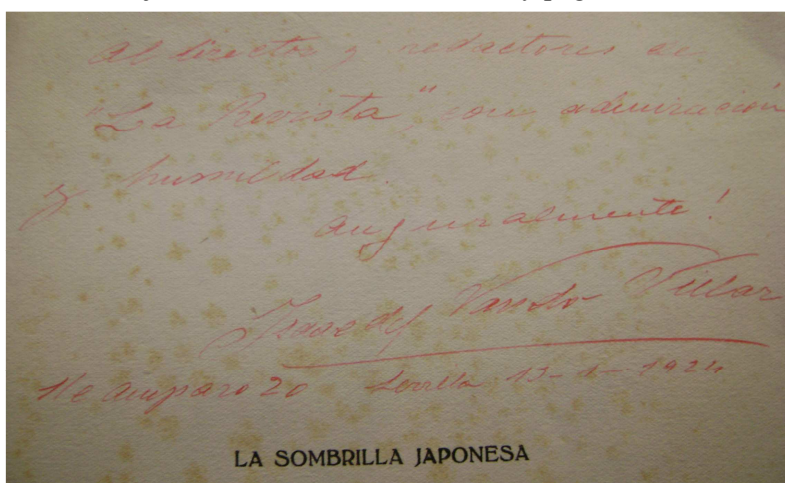 Al Director y redactores de
"La Revista", con admiración
y humildad.
auguralmente!
Isaac del Vando-Villar
S/c Amparo 20 Sevilla 13-1-1924
LA SOMBRILLA JAPONESA